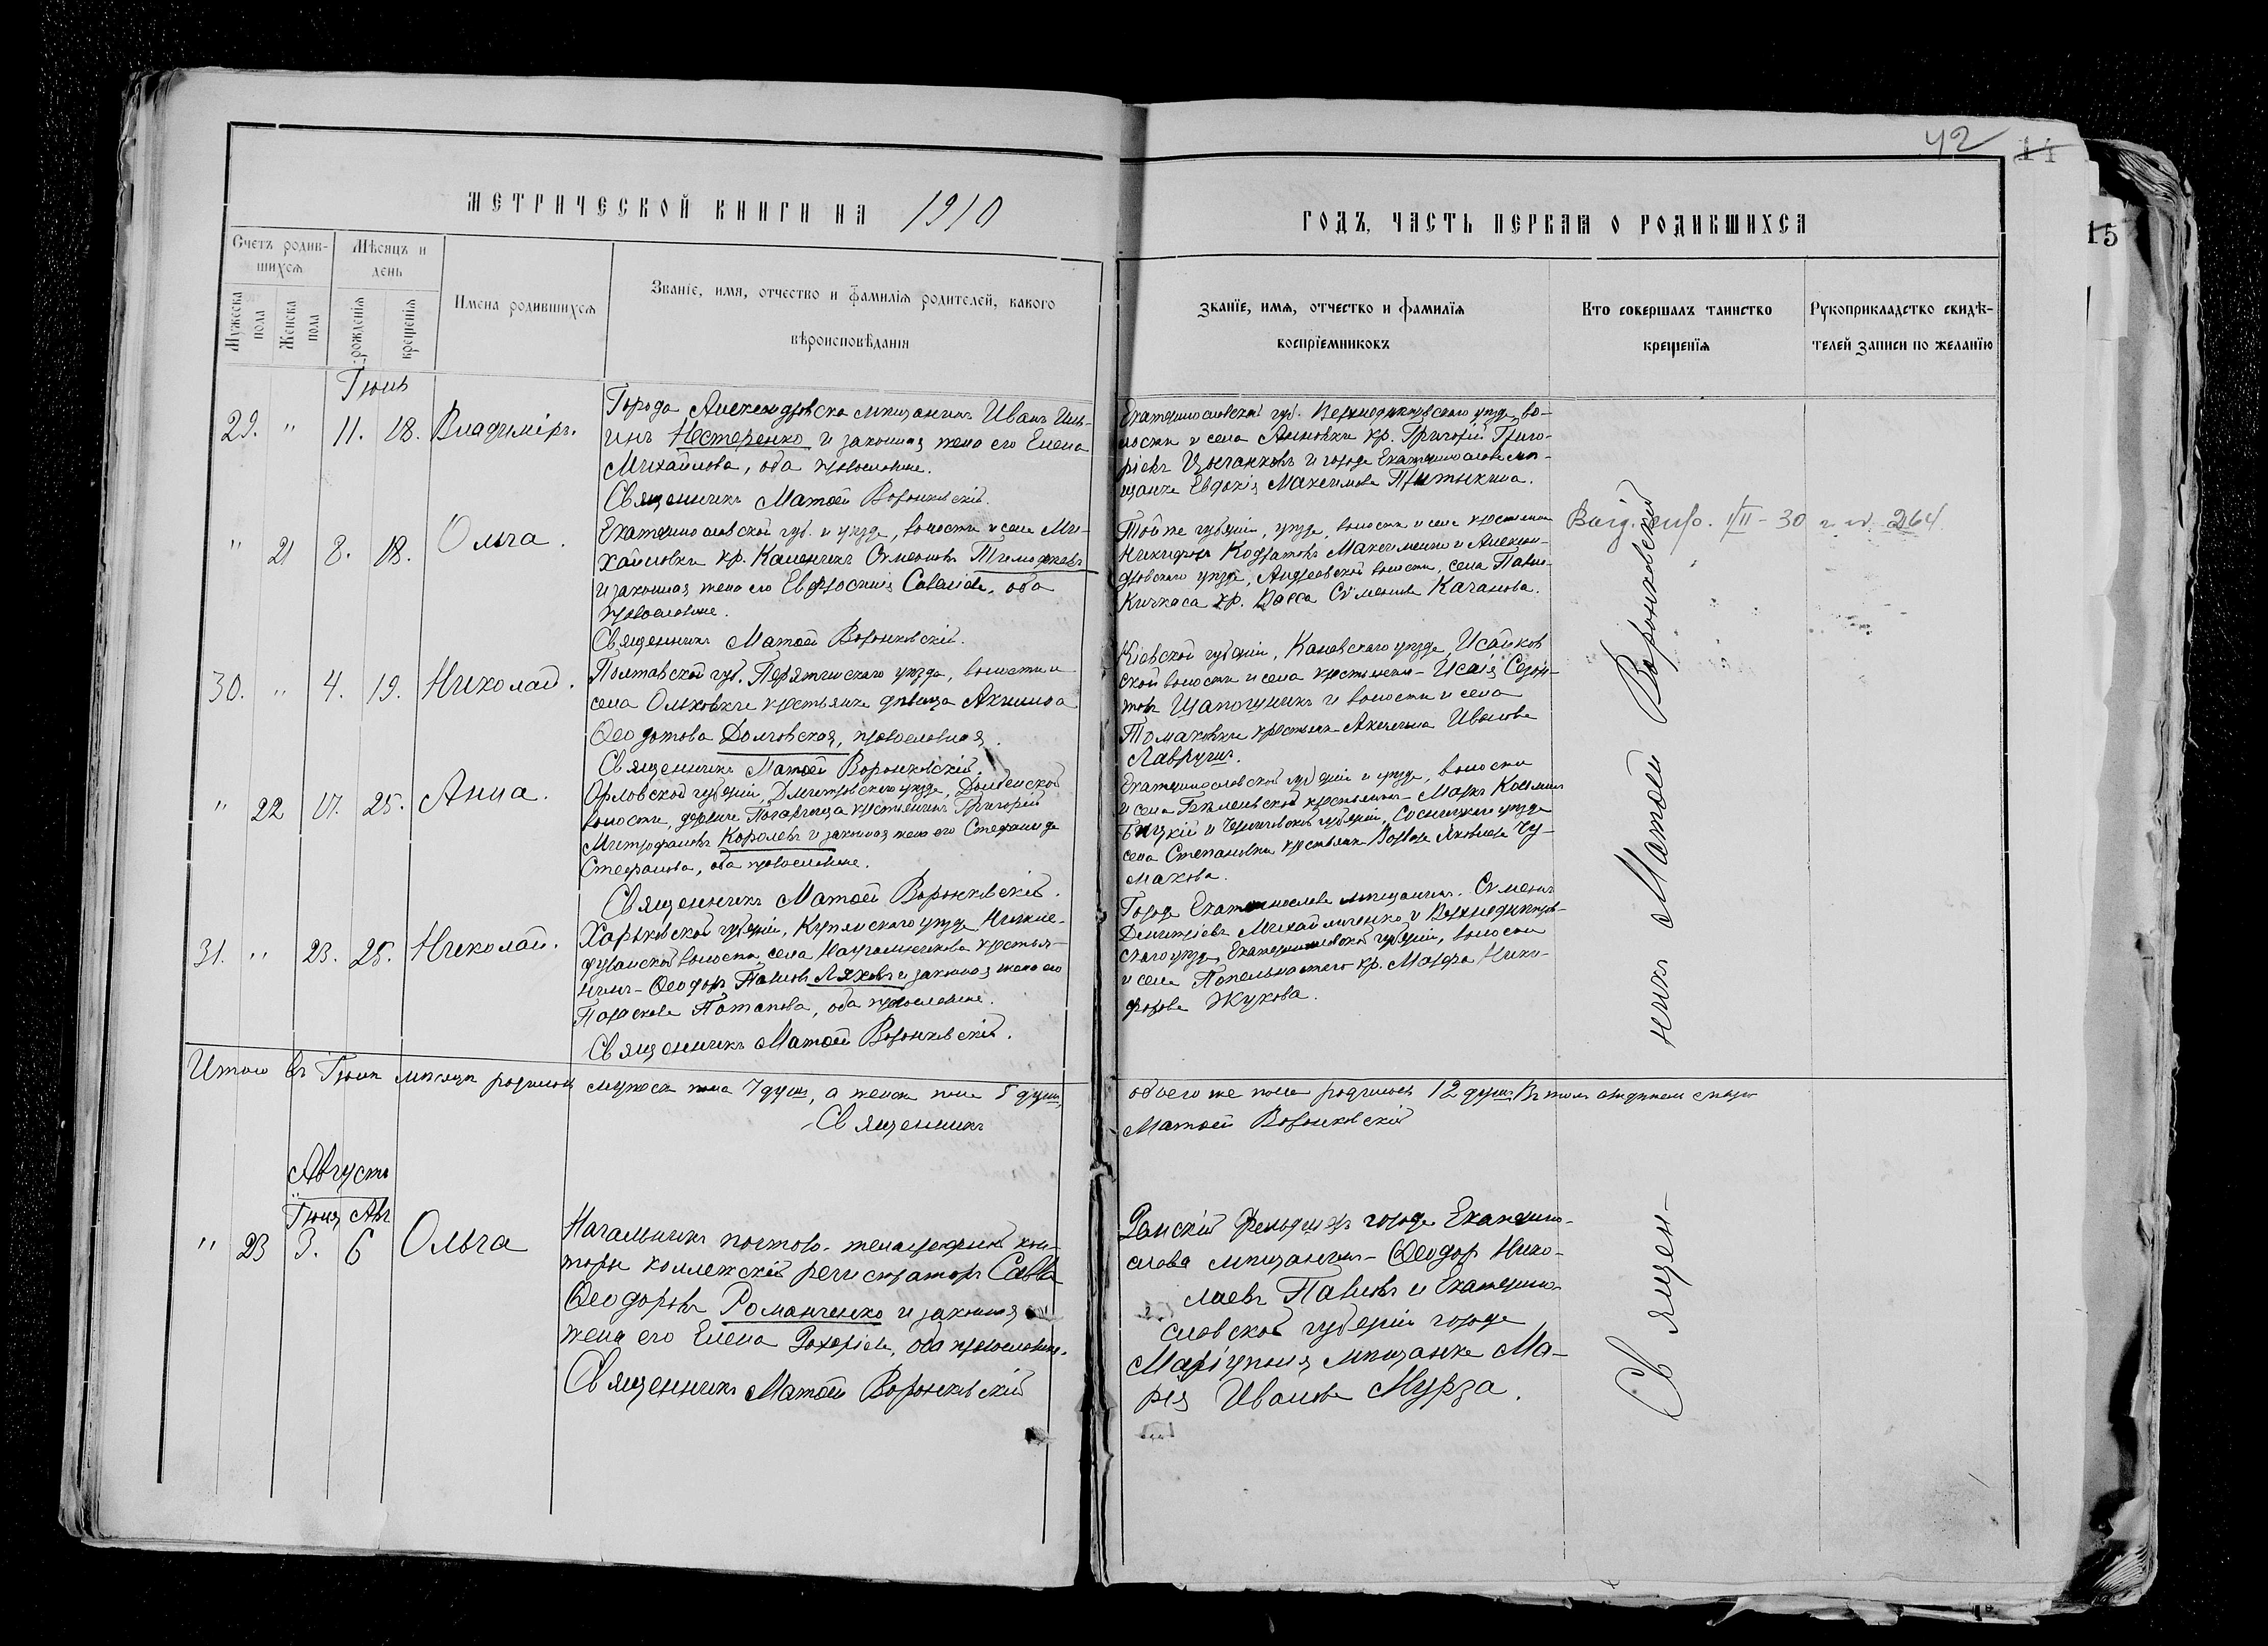 42
14
15
МЕТРИЧЕСКОЙ КНИГИ НА 1910
ГОДЪ, ЧАСТЬ ПЕРВАЯ О РОДИВШИХСЯ
Счетъ родив-
шихся
Мужеска пола
Женска пола
Мѣсяцъ и
день
рожденія
крещенія
Имена родившихся
Званіе, имя, отчество и фамилія родителей, какого
вѣроисповѣданія
Званіе, имя, отчество и фамилія
воспріемниковъ
Кто совершалъ таинство
крещенія
Рукоприкладство свидѣ-
телей записи по желанію
29. " 11. 18. Владиміръ.
Города Александровска мѣщанинъ Иванъ Иль-
инъ Нестеренко и законная жена его Елена
Михайлова, оба православные.
Священникъ Матѳей Воронковскій.
Екатеринославской губ. Верхнеднѣпровскаго уѣзда во-
лости и села Анновки кр. Григорій Григо-
ріевъ Цыганковъ и города Екатеринослава мѣ-
щанка Евдокія Максимова Притыкина.
" 21 8. 18. Ольга.
Екатеринославской губ. и уѣзда, волости и села Ми-
хайловки кр. Каленикъ Симеоновъ
и законная жена его Евфросинія Саввова, оба
православные.
Священникъ Матѳей Воронковскій.
Той же губерніи, уѣзда, волости и села крестьянинъ
Никифоръ Кодратовъ Максименко и Алексан-
дровскаго уѣзда, Андреевской волости, села Павло-
Кичкаса кр. Васса Симеонова Качанова.
30 г. № 264
30. " 4. 19. Николай.
Полтавской губ. Пирятинскаго уѣзда, волости и
села Ольховки крестьянка дѣвица Акилина
Ѳеодотова Долговская, православная.
Священникъ Матѳей Воронковскій.
Кіевской губерніи, Каневскаго уѣзда, Исайков
ской волости и села крестьянинъ - Исаія Созон-
товъ Щапошникъ и волости и села
Томаковки крестьянка Акилина Иванова
Лавручъ.
" 22 17. 25. Анна.
Орловской губерніи, Дмитровскаго уѣзда, Долбенской
волости, деревни Погарища крестьянинъ Григорій
Митрофановъ Королевъ и законная жена его Стефанида
Стефанова, оба православные.
Священникъ Матѳей Воронковскій.
Екатеринославской губерніи и уѣзда, волости
и села Бѣленьской крестьянинъ - Маркъ Косминъ
Бицкій и Черниговской губерніи, Сосницкаго уѣзда
села Степановки крестьянка Варвара Яковлева Чу-
макова.
31. " 23. 25. Николай.
Харьковской губерніи, Купянскаго уѣзда Нижне-
дуванской волости, села крестья-
нинъ - Ѳеодоръ Павловъ Ляховъ и законная жена его
Параскева Потапова, оба православные.
Священникъ Матѳей Воронковскій.
Города Екатеринослава мѣщанинъ Симеонъ
Димитріевъ Михайличенко и Верхнеднѣпров-
скаго уѣзда Екатеринославской губерніи, волости
и села Попельнастаго кр. Марфа Ники-
форова Жукова.
Итого въ мѣсяцѣ родилось мужеска пола 7 душъ, а женска пола 5 душъ,
обоего же пола родилось 12 душъ.
Священникъ
Матѳей Воронковскій
Августъ
Авг
" 23 3. 6 Ольга
Начальникъ почтово-телеграфной кон-
торы коллежскій регистраторъ Савва
Ѳеодоровъ Романченко и законная
жена его Елена оба православные.
Священникъ Матѳей Воронковскій
фельдшеръ города Екатерино-
слава мѣщанинъ - Ѳеодоръ Нико-
лаевъ Павловъ и Екатерино-
славской губерніи города
Маріуполя мѣщанка Ма-
рія Иванова Мурза.
Священ-
никъ Матѳей Воронковскій